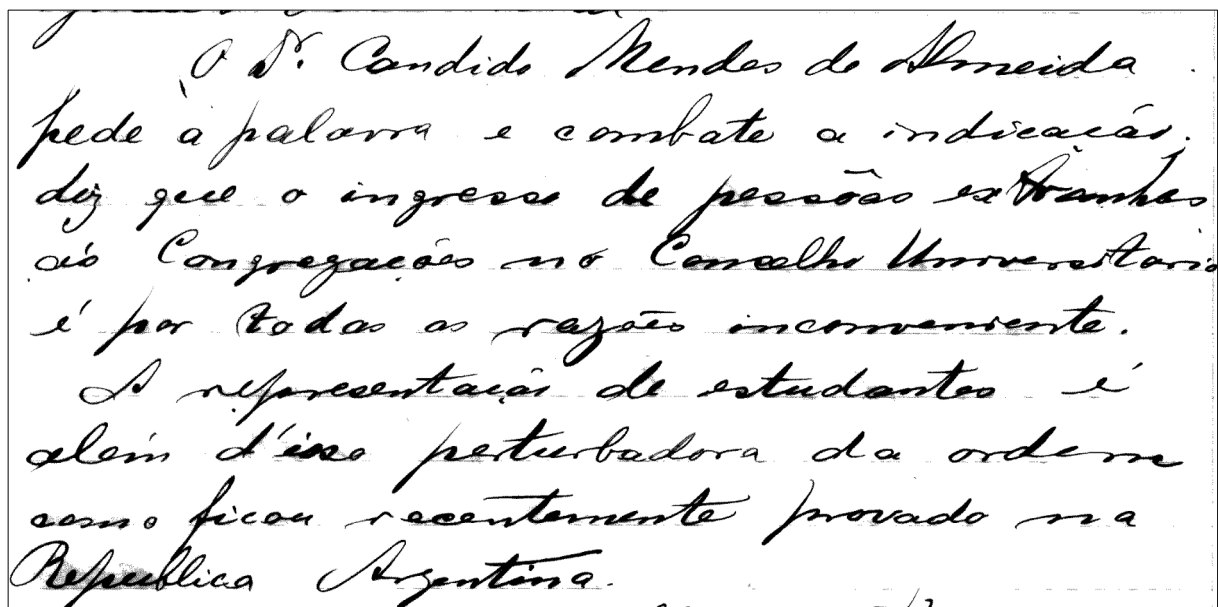 O Dr. Candido Mendes de Almeida
pede a palavra e combate a indicação.
diz que o ingresso de pessôas extranhas
ás Congregações no Conselho Universitario
é por todas as razões inconveniente.
A representação de estudantes é
além d'isso perturbadora da ordem
como ficou recentemente provado na
Republica Argentina.